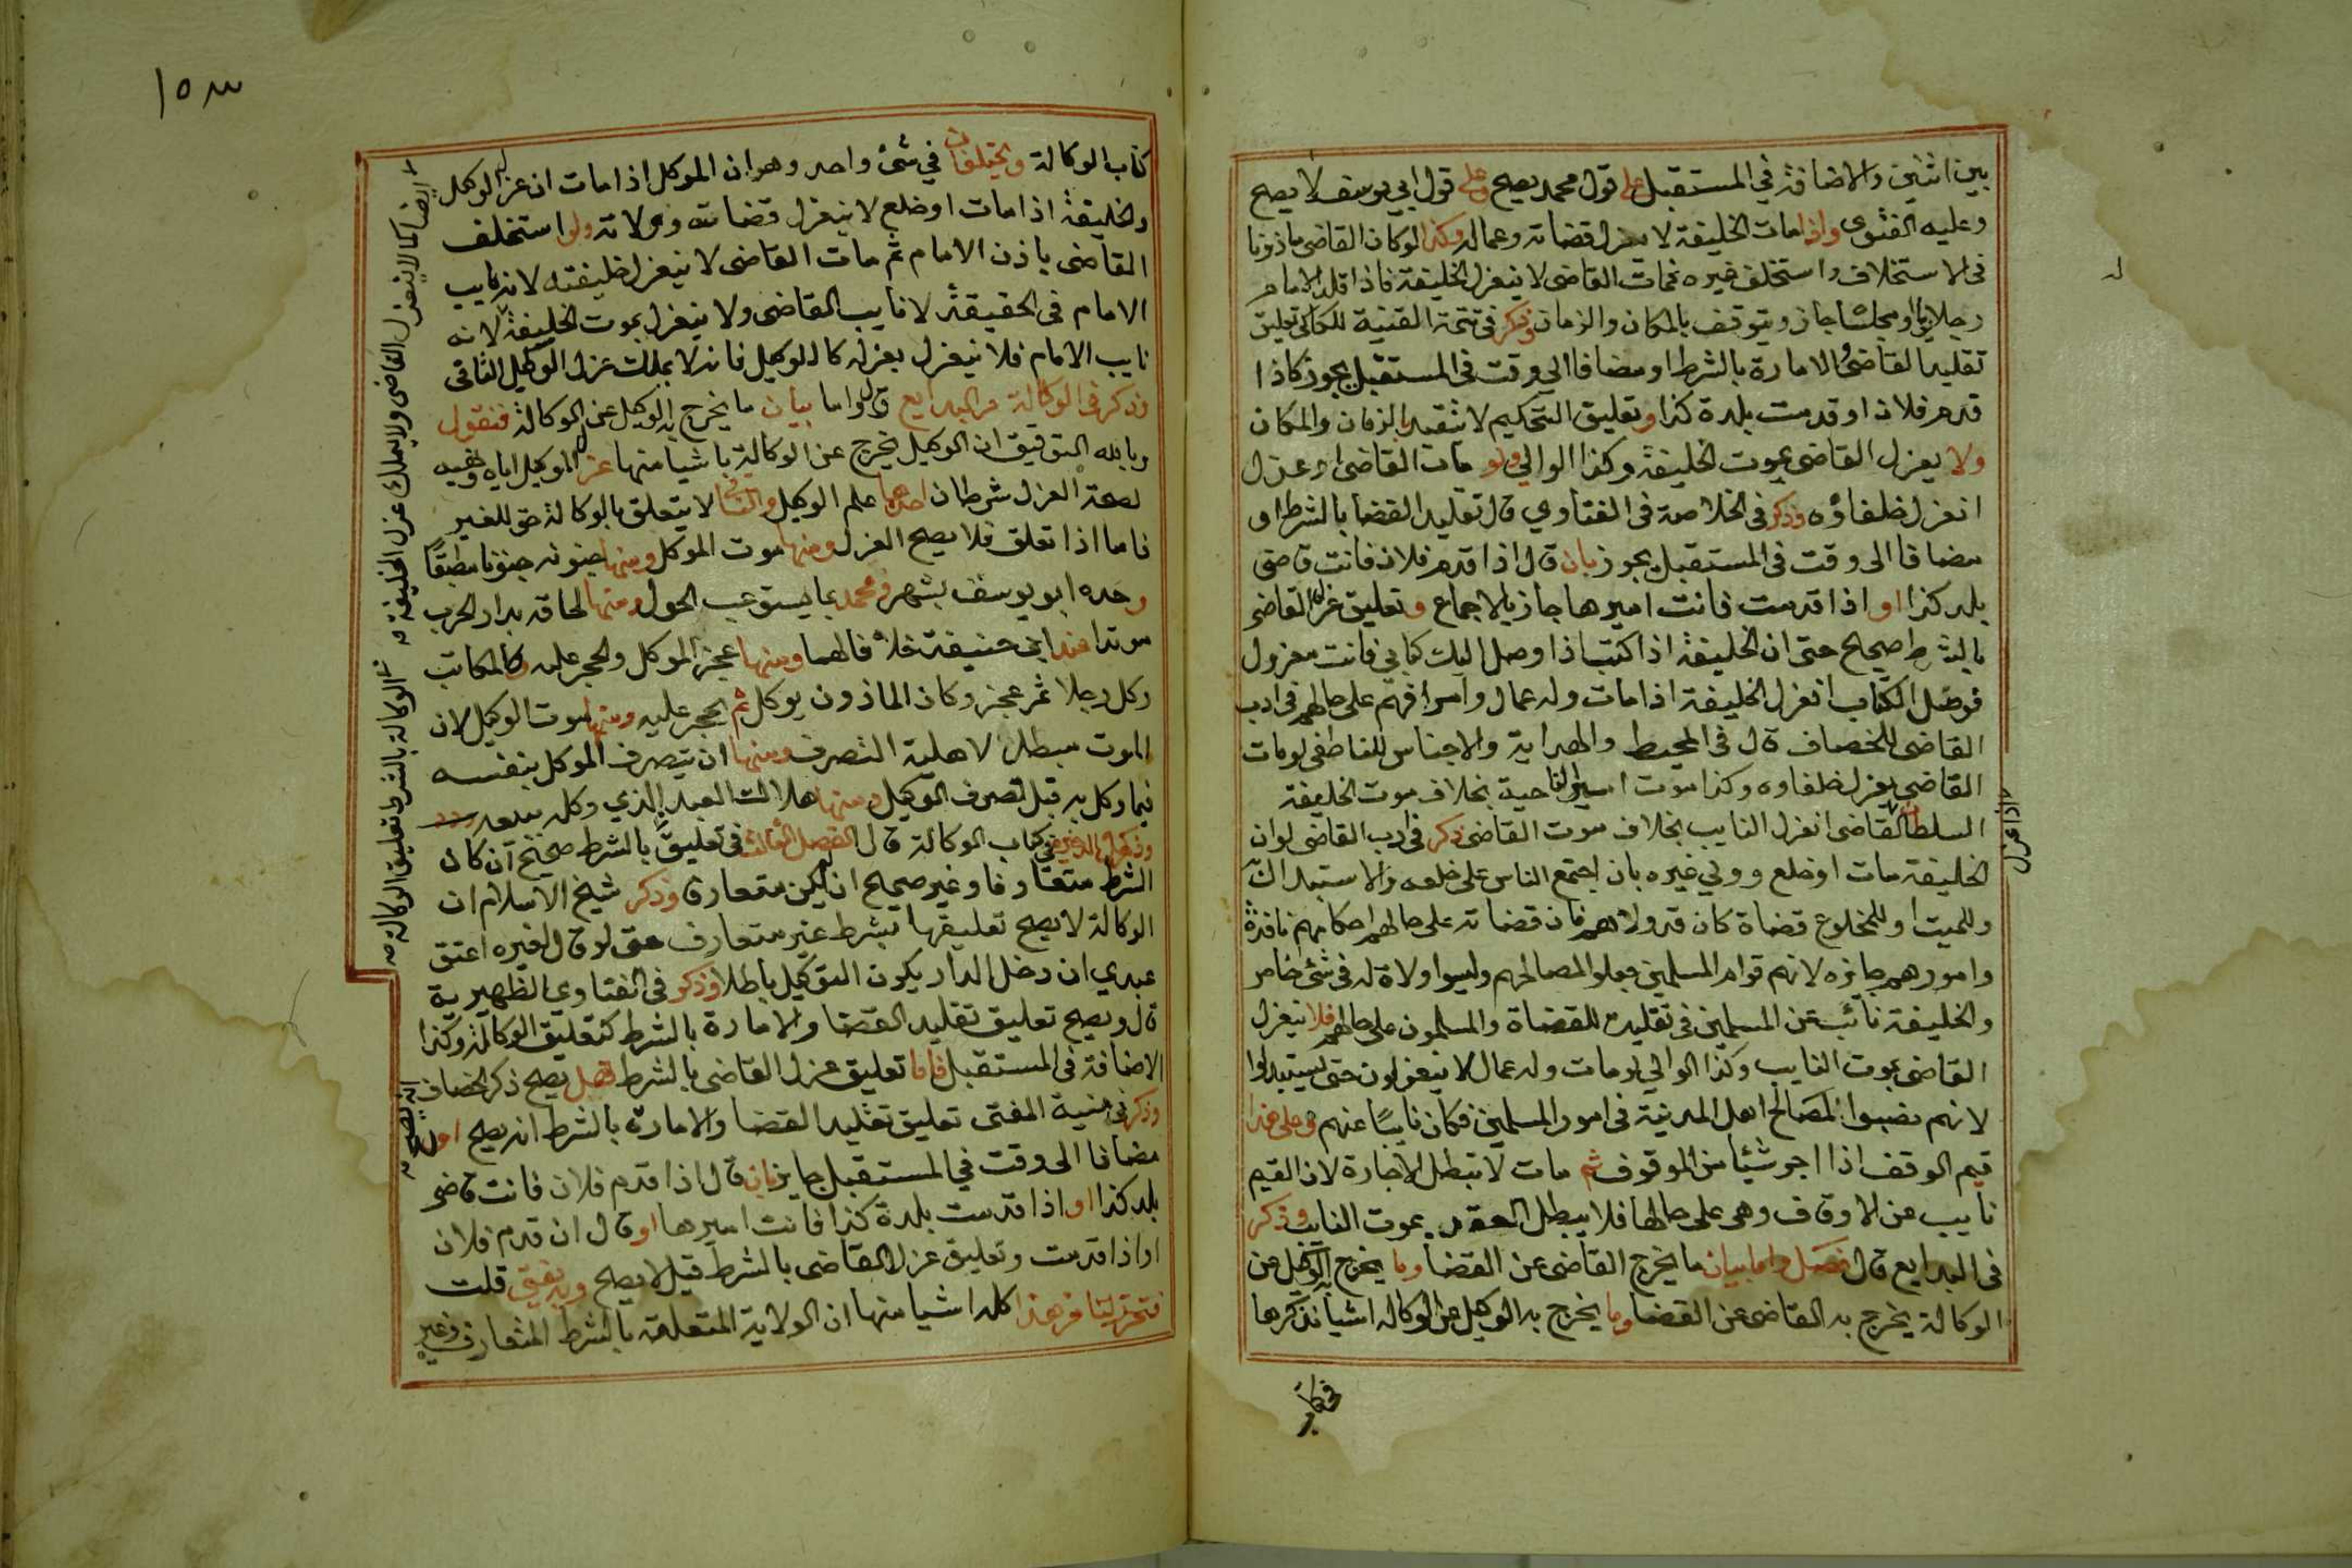 بين اثنين والاضافة في المستقبل على قول محمد يصح وعلى قول ابي يوسف لا يصح
وعليه الفتوى واذا مات الخليفة لا ينعزل قضاته وعماله وكذا لو كان القاضى ماذونا
فى الاستخلاف واستخلف غيره فمات القاضى لا ينعزل الخليفة فاذا قلد الامام
رجلا يوما او مجلسا جاز ويتوقف بالمكان والزمان وذكر فى تتمة القنية للكل تعليق
تقليد القاضى والامارة بالشرط او مضافا الى وقت فى المستقبل يجوز كاذا
قدم فلان او قدمت بلدة كذا وتعليق التحكيم لا ينقيد بالزمان والمكان
ولا يعزل القاضى بموت الخليفة وكذا الوالي ولو مات القاضى او عزل
انعزل خلفاؤه وذكر فى الخلاصة فى الفتاوي قال تقليد القضا بالشرط او
مضافا الى وقت فى المستقبل يجوز بان قال اذا قدم فلان فانت قاضى
بلد كذا او اذا قدمت فانت اميرها جاز بالاجماع وتعليق عزل القاضى
بالشرط صحيح حتى ان الخليفة اذا كتب اذا وصل اليك كتابي فانت معزول
فوصل الكتاب انعزل الخليفة اذا مات وله عمال وامراء فهم على حالهم فى ادب
القاضى للخصاف قال فى المحيط والهداية والاجناس للناطفى لو مات
القاضى يعزل خلفاوه وكذا موت امير الناحية بخلاف موت الخليفة
السلطان القاضى انعزل النايب بخلاف موت القاضى ذكر فى ادب القاضى لو ان
اذا عزل
الخليفة مات او خلع وولي غيره بان اجتمع الناس على خلعه والاستبدال
وللميت او للمخلوع قضاة كان قد ولاهم فان قضاته على حالهم احكامهم نافذة
وامورهم جايزه لانهم قوام المسلمين جعلوا لمصالحهم وليسوا ولاة له فى شئ خاص
والخليفة نائب عن المسلمين فى تقليده للقضاة والمسلمون على حالهم فلا ينعزل
القاضى بموت النايب وكذا الوالي لو مات وله عمال لا ينعزلون حتى يستبدلوا
لانهم نصبوا لمصالح اهل المدينة فى امور المسلمين فكان نايبا عنهم وعلى هذا
قيم الوقف اذا اجر شيئا من الموقوف ثم مات لا تبطل الاجارة لان القيم
نايب عن الاوقاف وهى على حالها فلا يبطل العقد بموت النايب وذكر
فى البدايع قال فصل واما بيان ما يخرج القاضى عن القضا وما يخرج به الوكيل عن
الوكالة يخرج به القاضى عن القضا وما يخرج به الوكيل عن الوكالة اشيا نذكرها
فى كتاب
١٥٣
كتاب الوكالة ويختلفان في شئ واحد وهو ان الموكل اذا مات انعزل الوكيل
والخليفة اذا مات او خلع لا ينعزل قضاته وولاته ولو استخلف
القاضى باذن الامام ثم مات القاضى لا ينعزل خليفته لانه نايب
الامام فى الحقيقة لا نايب القاضى ولا ينعزل بموت الخليفة لانه
نايب الامام فلا ينعزل بعزله كالوكيل فانه لا يملك عزل الوكيل الثانى
وذكر فى الوكالة من البدايع قال واما بيان ما يخرج به الوكيل عن الوكالة فنقول
وبالله التوفيق ان الوكيل يخرج عن الوكالة باشيا منها عزل الموكل اياه ونهيه
لصحة العزل شرطان احدهما علم الوكيل والثانى لا يتعلق بالوكالة حق للغير
فاما اذا تعلق فلا يصح العزل ومنها موت الموكل ومنها جنونه جنونا مطبقا
وحده ابو يوسف بشهر ومحمد بما يستوعب الحول ومنها لحاقه بدار الحرب
مرتدا عند ابي حنيفة خلافا لهما ومنها عجز الموكل والحجر عليه كالمكاتب
وكل رجلا ثم عجز وكاذا الماذون يوكل ثم الحجر عليه ومنها موت الوكيل لان
الموت مبطل لاهلية التصرف ومنها ان يتصرف الموكل بنفسه
فيما وكل به قبل تصرف الوكيل ومنها هلاك العبد الذي وكله ببيعه
وذكر فى كتاب الوكالة قال الفصل الثالث فى تعليق بالشرط صحيح ان كان
الشرط متعارفا وغير صحيح ان لم يكن متعارف وذكر شيخ الاسلام ان
الوكالة لا يصح تعليقها بشرط غير متعارف حتى لو قال لغيره اعتق
عبدي ان دخل الدار يكون التوكيل باطلا وذكر فى الفتاوى الظهيرية
قال ويصح تعليق تقليد القضا والامارة بالشرط كتعليق الوكالة وكذا
الاضافة فى المستقبل فاما تعليق عزل القاضى بالشرط فهل يصح ذكر الخصاف
وذكر فى منية المفتى تعليق تقليد القضا والامارة بالشرط انه يصح او
مضافا الى وقت في المستقبل جايز بان قال اذا قدم فلان فانت قاضى
بلد كذا او اذا قدمت بلدة كذا فانت اميرها او قال ان قدم فلان
او اذا قدمت وتعليق عزل القاضى بالشرط قيل لا يصح وبه يفتى قلت
فتحرر لنا من هذا كله اشيا منها ان الولاية المتعلقة بالشرط المتعارف وغير
ايضا كما لا ينعزل القاضى ولا يملك عزل الخليفة صح
الوكالة بالشرط تعليق الوكالة صح
انه يصح